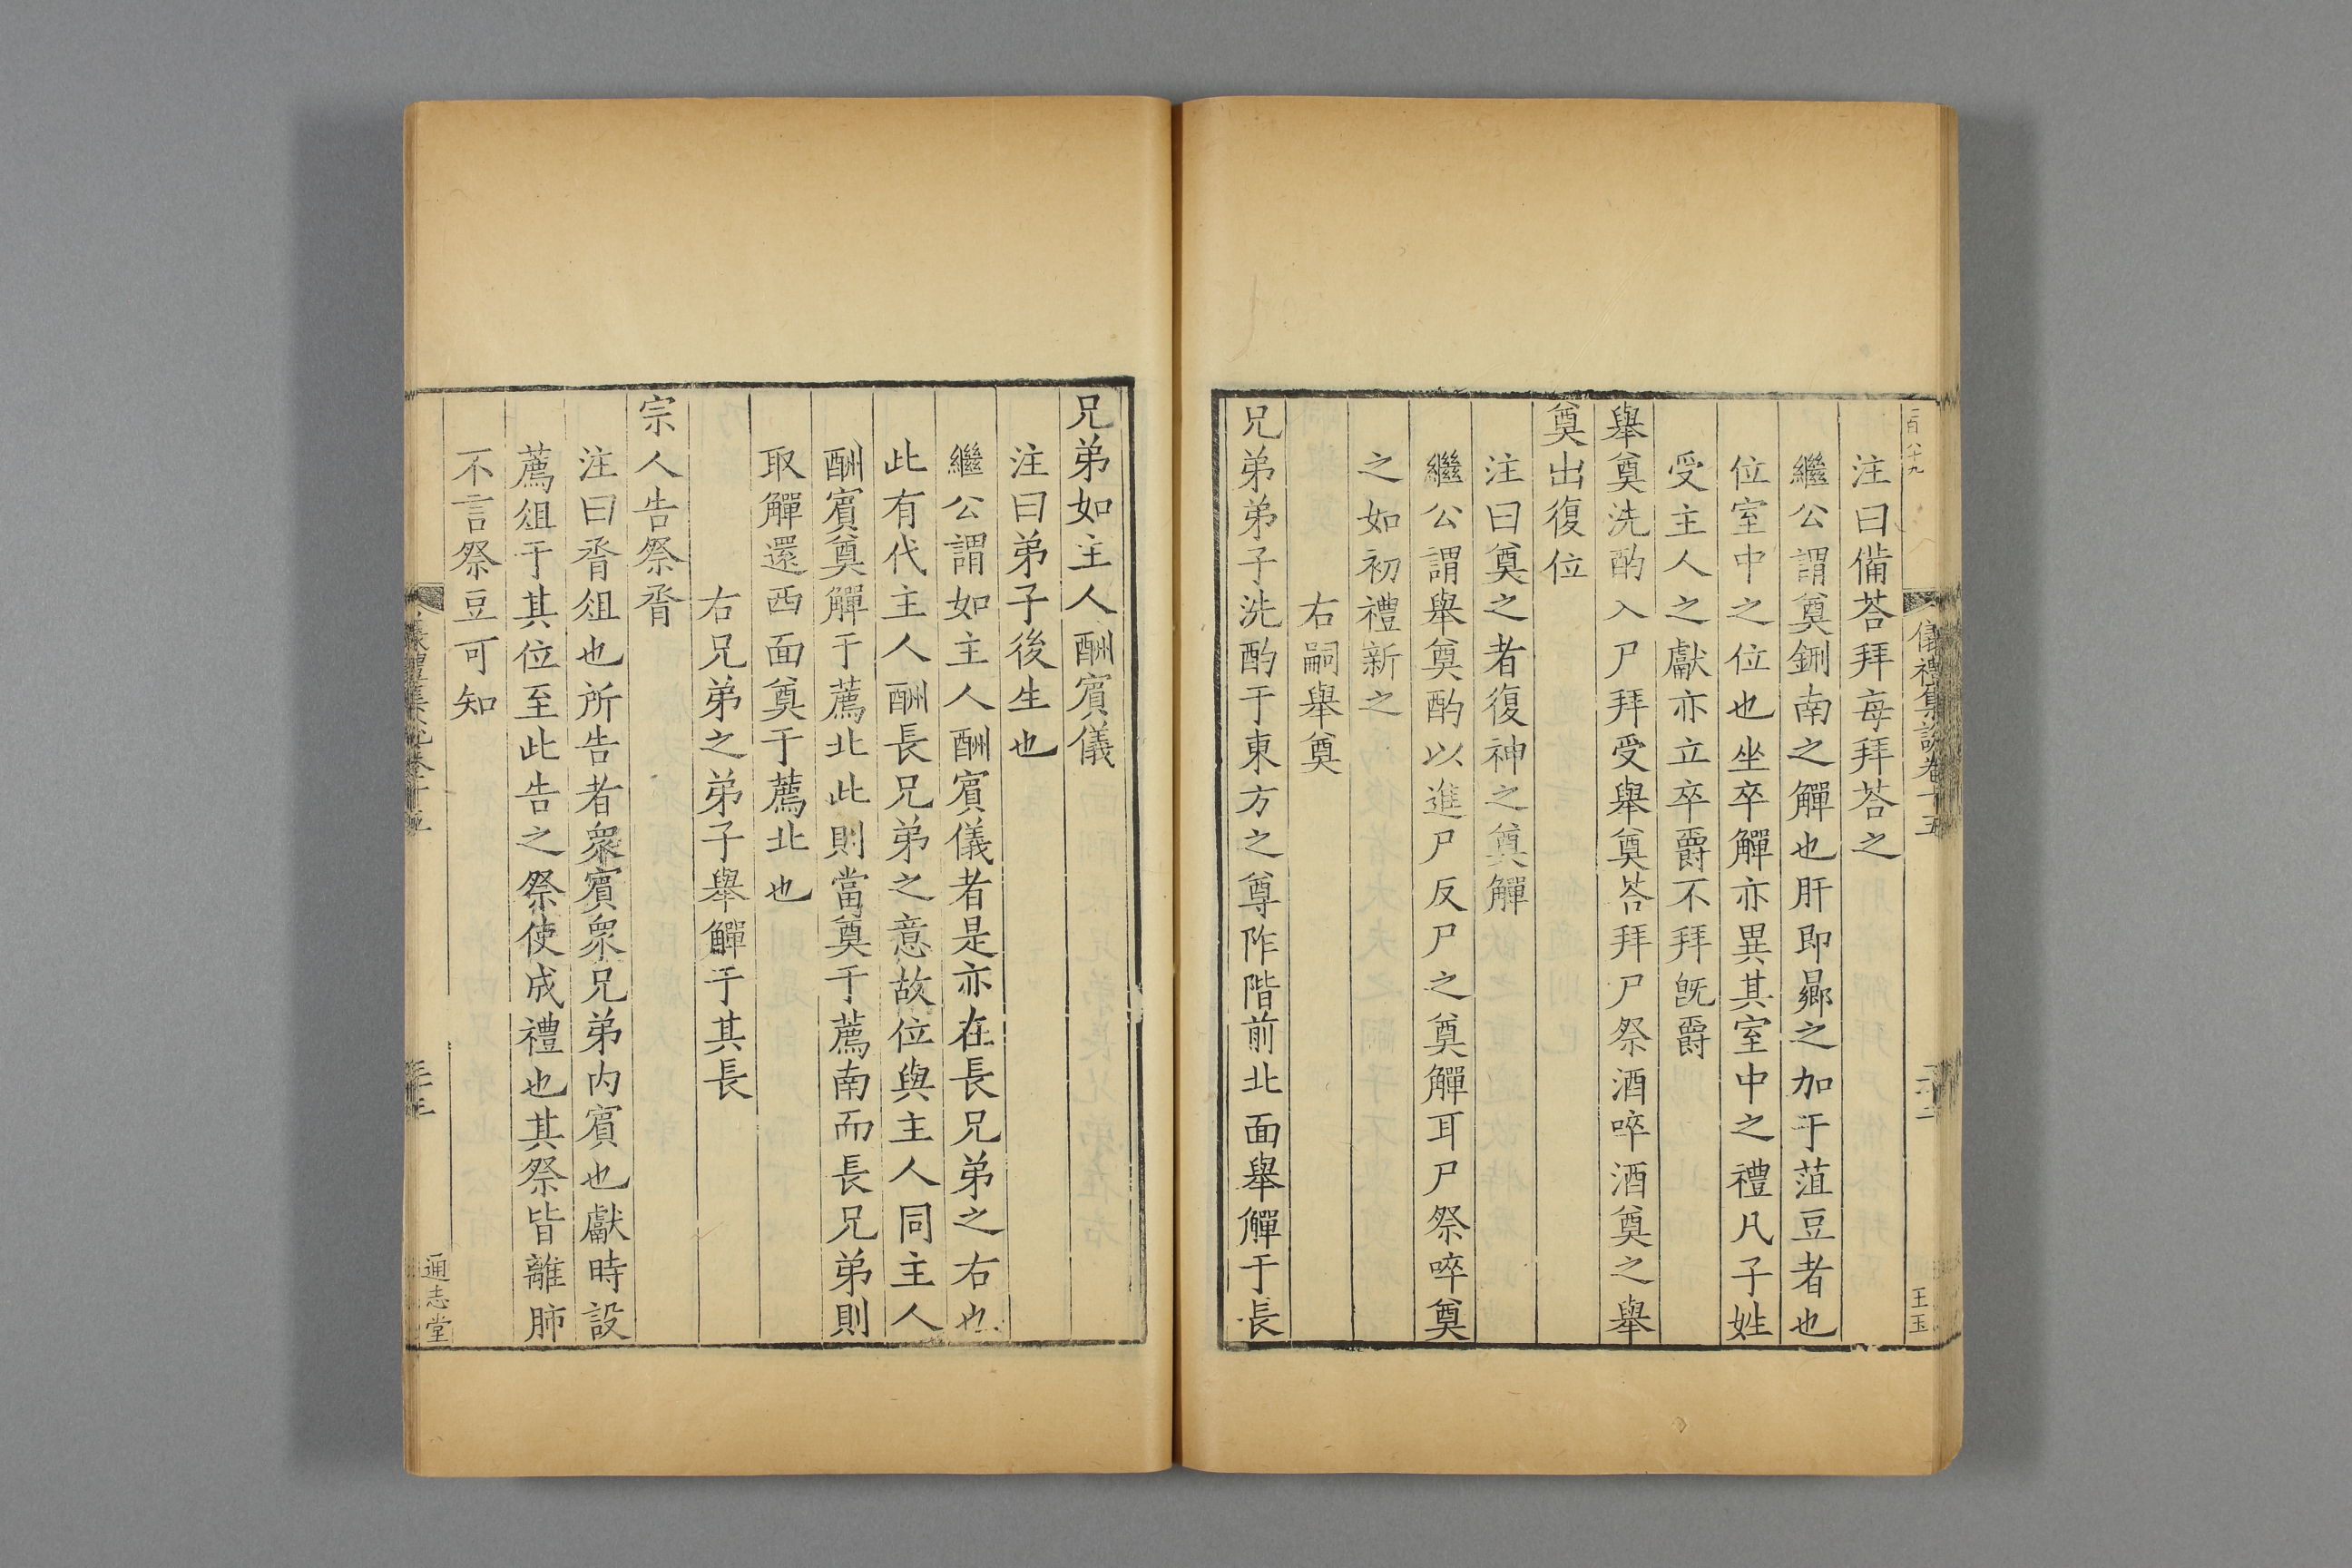 二百八十九
儀禮集說卷十五
三十二
王玉
注曰備荅拜每拜荅之
繼公謂奠鉶南之觶也肝即曏之加于菹豆者也
位室中之位也坐卒觶亦異其室中之禮凡子姓
受主人之獻亦立卒爵不拜旣爵
舉奠洗酌入尸拜受舉奠荅拜尸祭酒啐酒奠之舉
奠出復位
注曰奠之者復神之奠觶
繼公謂舉奠酌以進尸反尸之奠觶耳尸祭啐奠
之如初禮新之
右嗣舉奠
兄弟弟子洗酌于東方之尊阼階前北面舉觶于長
兄弟如主人酬賓儀
注曰弟子後生也
繼公謂如主人酬賓儀者是亦在長兄弟之右也
此有代主人酬長兄弟之意故位與主人同主人
酬賓奠觶于薦北此則當奠于薦南而長兄弟則
取觶還西面奠于薦北也
右兄弟之弟子舉觶于其長
宗人告祭脀
注曰脀俎也所告者衆賓衆兄弟内賓也獻時設
薦俎于其位至此告之祭使成禮也其祭皆離肺
不言祭豆可知
儀禮集說卷十五
三十三
通志堂